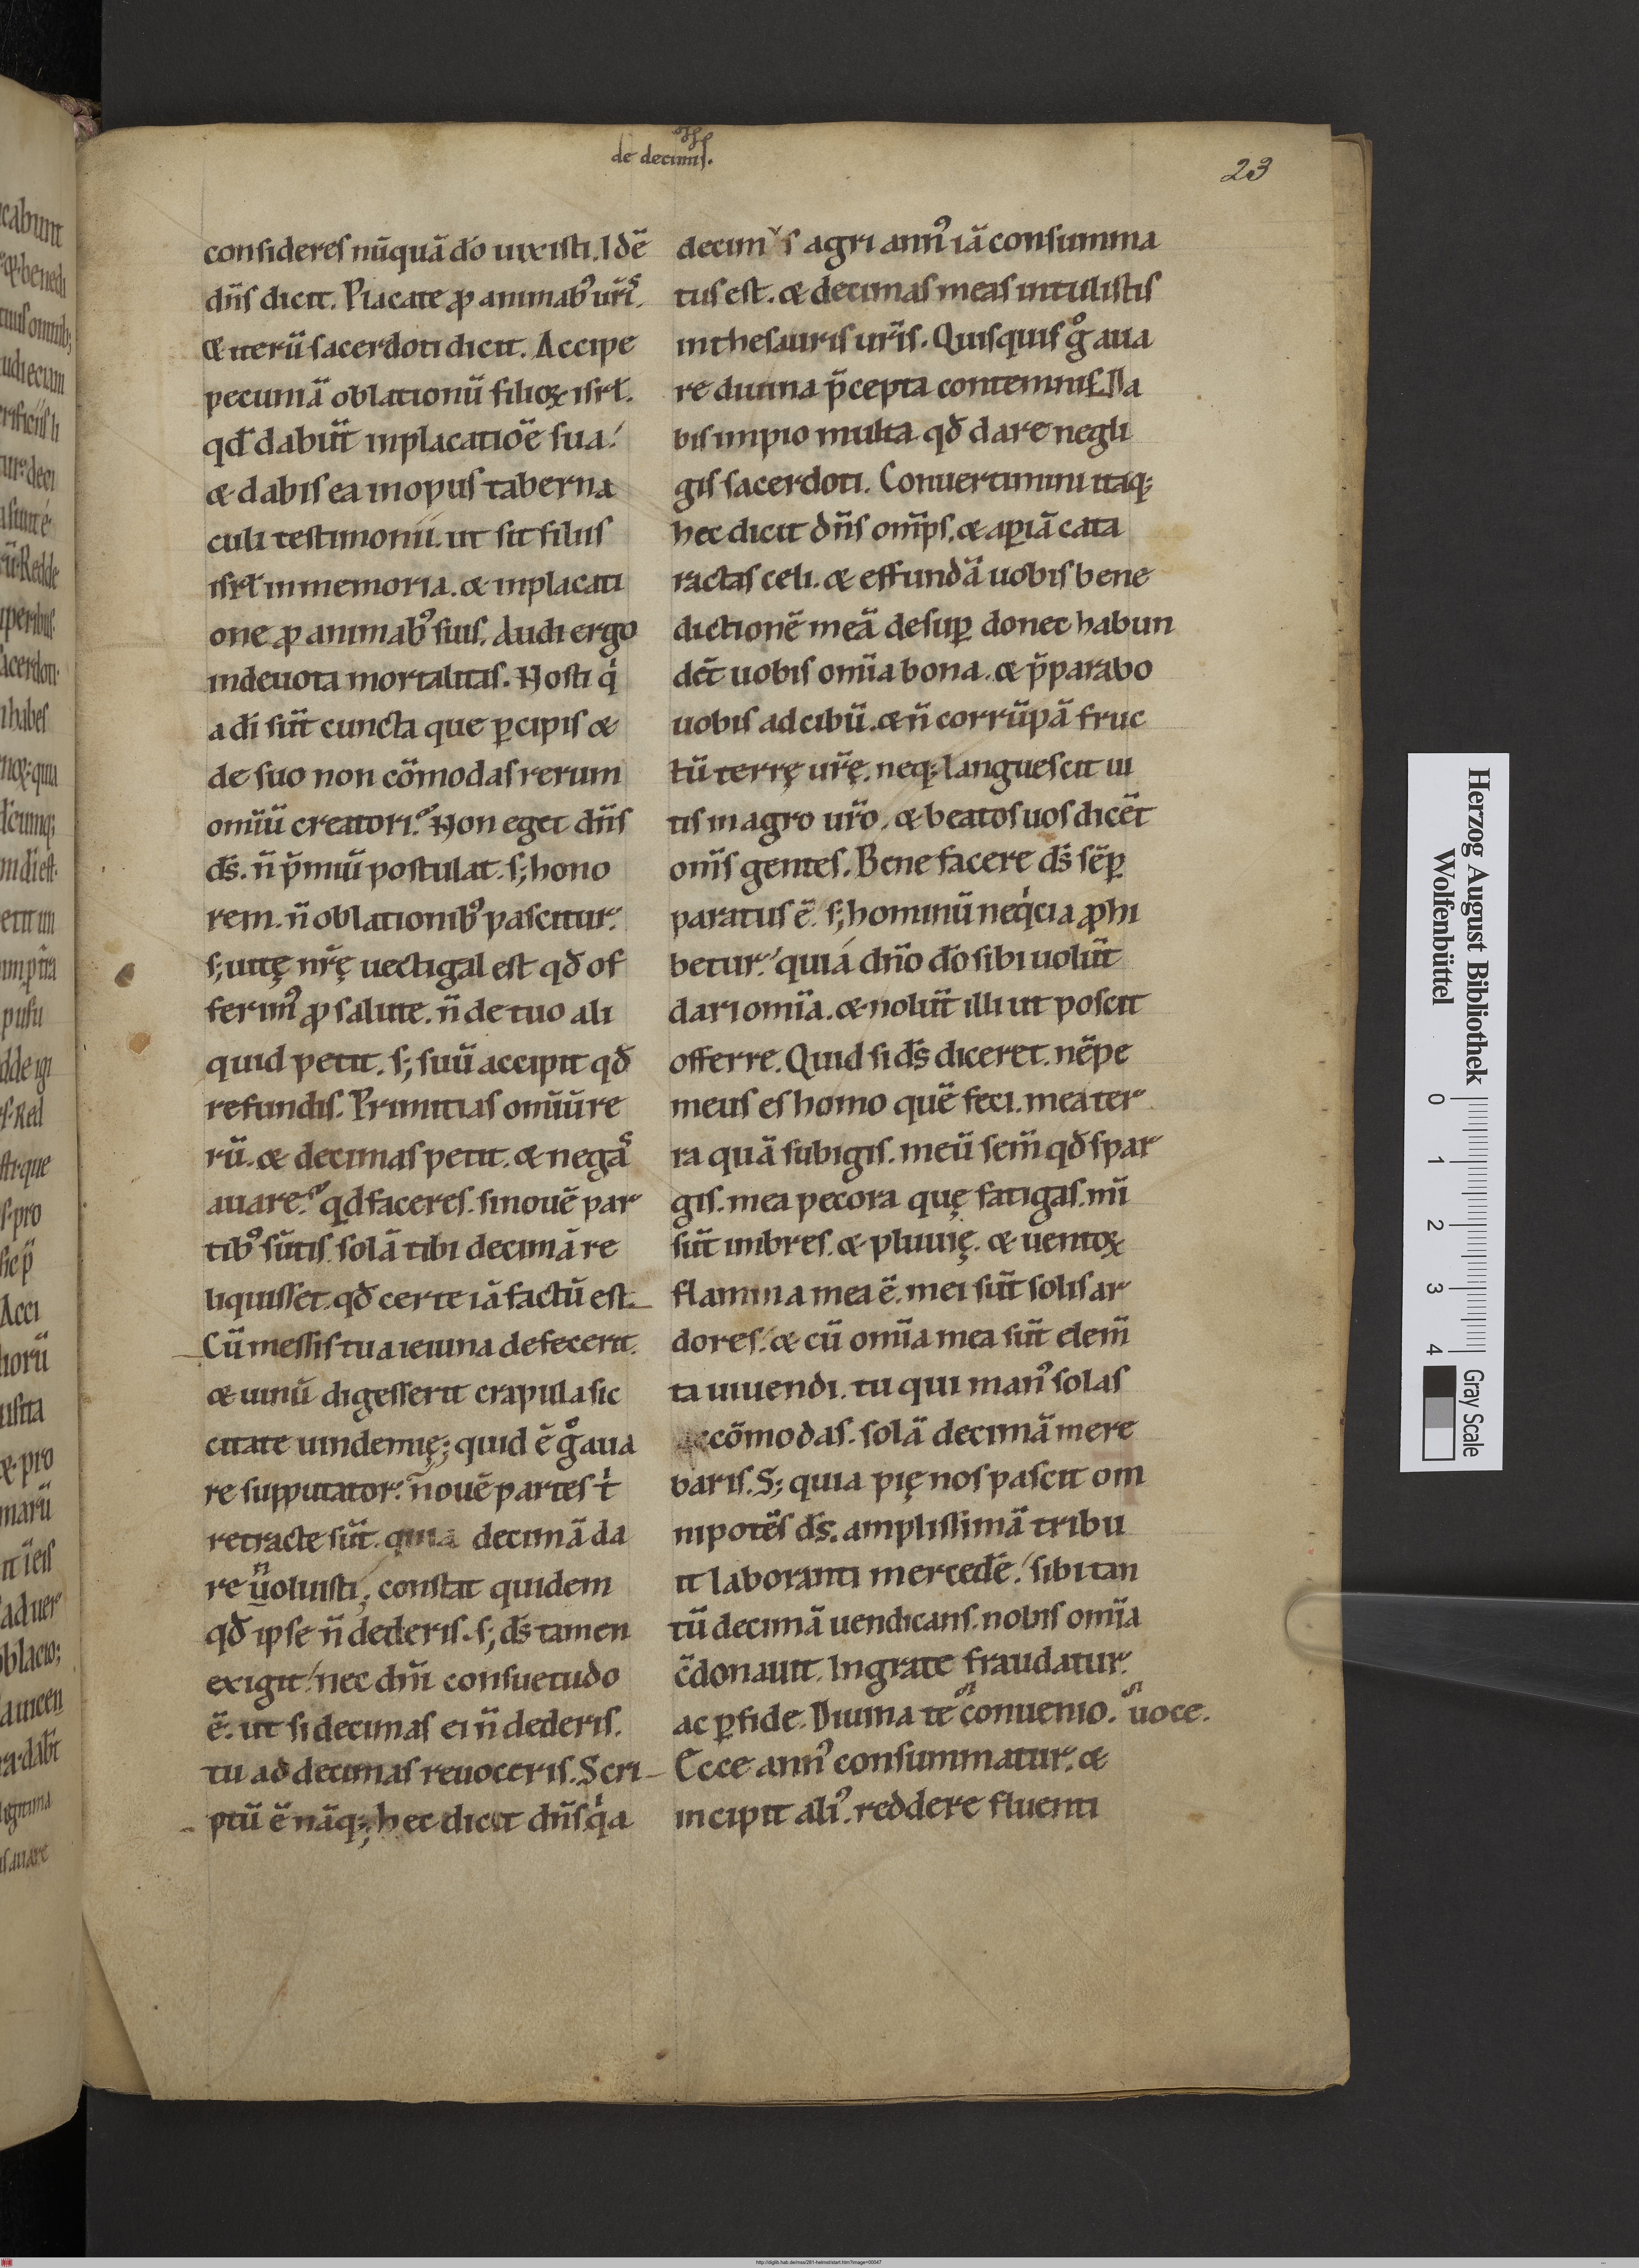 de decimis.
23
consideres nūquā do uixisti. Idē
dn̄s dicit. Placate ꝓ animabꝰ ur̄is.
& iterū sacerdoti dicit. Accipe
pecuniā oblationū filioꝝ isrł.
qd dabūt inplacatiōe sua.
& dabis ea inopus taberna
culi testimonii. ut sit filiis
isrł inmemoria. & inplacati
one ꝓ animabꝰ suis. Audi ergo
indeuota mortalitas. Nosti qͥ
a di sūt cuncta que ꝑcipis &
de suo non cōmodas rerum
om̄iū creatori. Non eget dn̄s
ds̄. n̄ p̄miū postulat. s; hono
rem. n̄ oblationibꝰ pascitur.
s; uitę nr̄ę uectigal est qđ of
ferimꝰ ꝓ salute. n̄ de tuo ali
quid petit. s; suū accipit qđ
refundis. Primitias om̄iū re
rū. & decimas petit. & negas
auare. qd faceres. sinouē par
tibꝰ sūtis solā tibi decimā re
liquisset. qđ certe iā factū est.
Cū messis tua ieiuna defecerit.
& uinū digesserit crapula sic
citate uindemię; quid ē gͦ aua
re supputator. n̄ouē partes tͥ
retracte sūt. quia decimā da
re n̄ uoluisti; constat quidem
qđ ipse n̄ dederis. s; ds̄ tamen
exigit. nec dn̄i consuetudo
ē. ut si decimas ei n̄ dederis.
tu ad decimas reuoceris. Scri
ptū ē nāq; hec dicit dn̄s qͥa
decimis agri annꝰ iā consumma
tus est. & decimas meas intulistis
inthesauris ur̄is. Quisquis gͦ aua
re diuina p̄cepta contemnis. Da
bis impio multa qđ dare negli
gis sacerdoti. Conuertimini itaq;
hec dicit dn̄s om̄ps. & aꝑiā cata
ractas celi. & effundā uobis bene
dictionē meā desuꝑ donec habun
dēt uobis om̄ia bona. & p̄parabo
uobis ad cibū. & n̄ corrūpā fruc
tū terrę ur̄ę. neq; languescit ui
tis in agro ur̄o. & beatos uos dicēt
om̄s gentes. Bene facere ds̄ sēꝑ
paratus ē. s; hominū neqͥcia ꝓhi
betur. quia dn̄o do sibi uolūt
dari om̄ia. & nolūt illi ut poscit
offerre. Quid si ds̄ diceret. nēpe
meus es homo quē feci. mea ter
ra quā subigis. meū sem̄ qđ spar
gis. mea pecora quę fatigas. mī
sūt imbres. & pluuię. & uentoꝝ
flamina mea ē. mei sūt solis ar
dores. & cū om̄ia mea sūt elem̄
ta uiuendi. tu qui manꝰ solas
accōmodas. solā decimā mere
baris. S; quia pię nos pascit om
nipotēs ds̄. amplissimā tribu
it laboranti mercedē. sibi tan
tū decimā uendicans. nobis om̄ia
c̄donauit. Ingrate fraudatur
ac ꝑfide. Diuina te conuenio. uoce.
Ecce annꝰ consummatur. &
incipit aliꝰ. reddere fluenti
Herzog August Bibliothek
Wolfenbüttel
0 1 2 3 4
Gray Scale
http://diglib.hab.de/mss/281-helmst/start.htm?image=00047